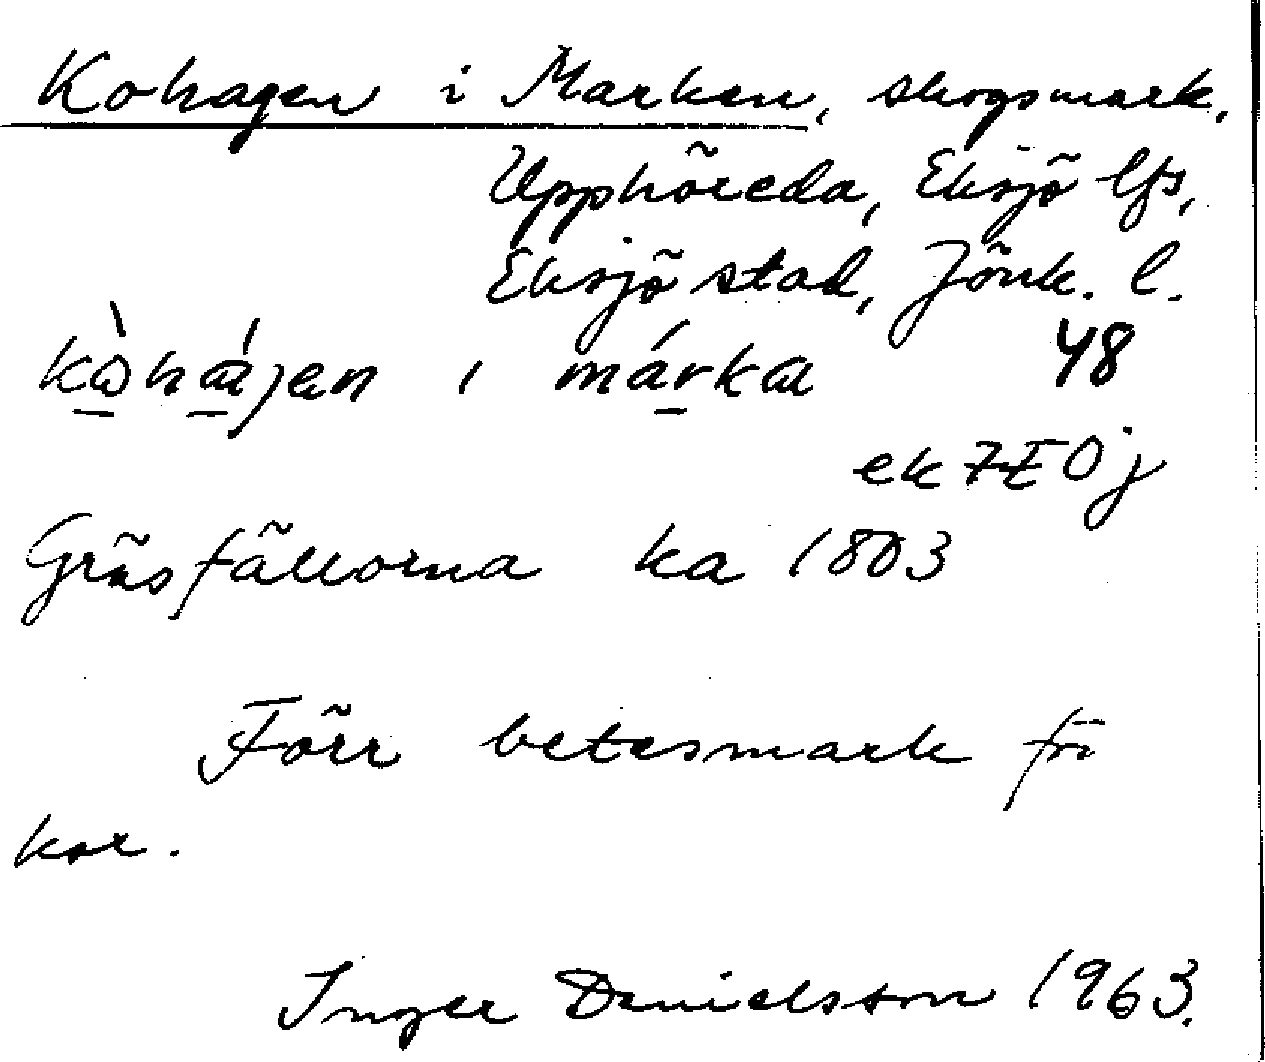 Kohagen i Marken, skogsmark,
Upphöreda, Eksjö lfs,
Eksjö stad, Jönk. l.
kòhájen i márka 48
ek 7E0j
Gräsfällorna ka 1803
Förr betesmark för
kor.
Inger Danielsson 1963.